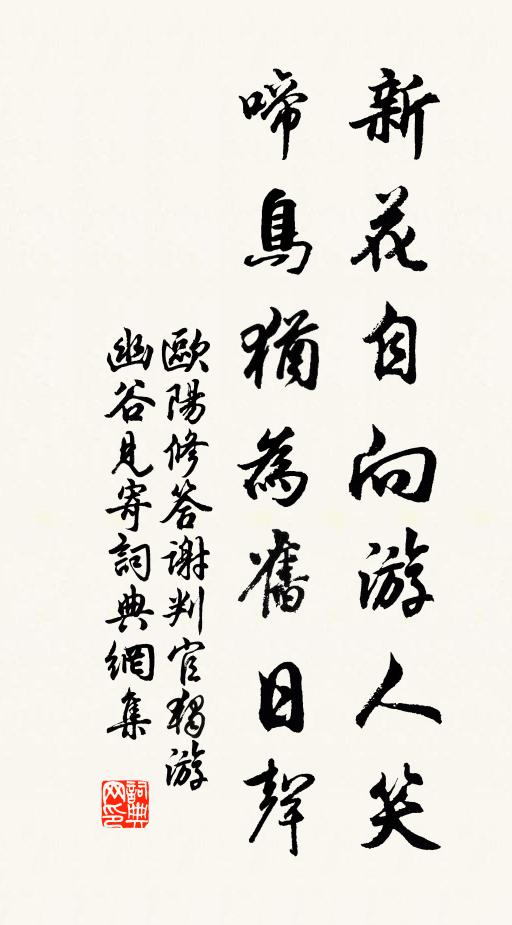 新花自向游人笑
啼鳥猶為舊日聲
歐陽修答謝判官獨游
幽谷見寄詞典網集
詞典
网印